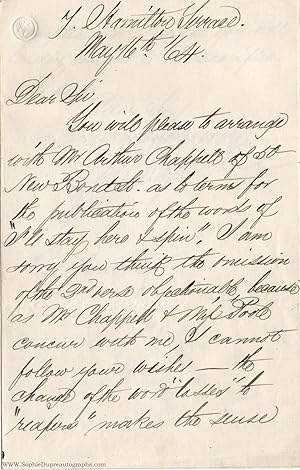 7. Hamilton Terrace.
May 16th /64.
Dear Sir
You will please to arrange
with Mr Arthur Chappell of 50
New Bond St. as to terms for
the publication of the words of
"I'll stay here & spin". I am
sorry you think the omission
of the 2nd verse objectionable, because
as Mr Chappell & Miss Poole
concur with me, I cannot
follow your wishes — the
change of the word "lasses" to
"reapers" makes the sense
www.SophieDupreautographs.com